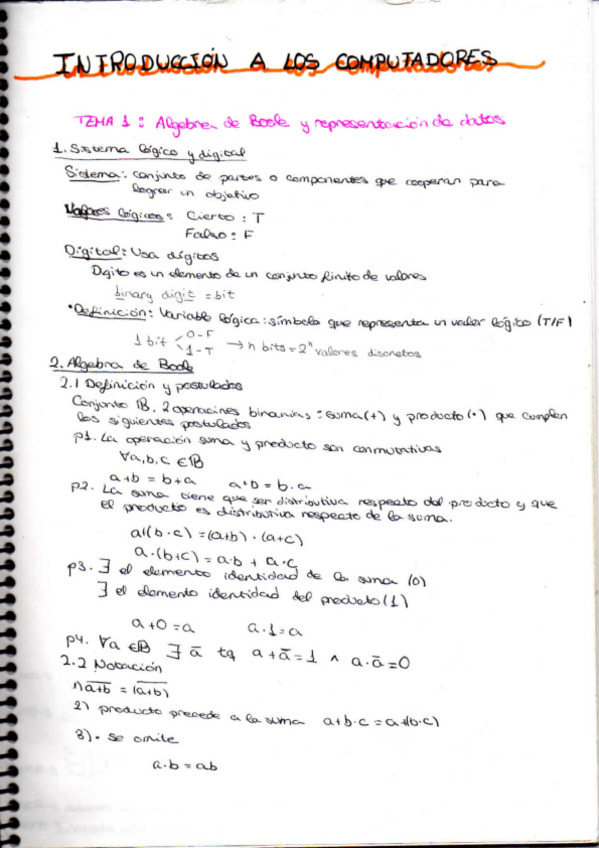 INTRODUCCIÓN A LOS COMPUTADORES
TEMA 1: Algebra de Boole y representación de datos
1. Sistema lógico y digital
Sistema: conjunto de partes o componentes que cooperan para
lograr un objetivo
Valores lógicos: Cierto : T
Falso : F
Digital: Usa dígitos
Dígito es un elemento de un conjunto finito de valores
binary digit = bit
•Definición: Variable lógica: símbolo que representa un valor lógico (T/F)
1 bit < 0-F
1-T → n bits = 2ⁿ valores discretos
2. Algebra de Boole
2.1 Definición y postulados
Conjunto B, 2 operaciones binarias: suma(+) y producto(·) que cumplen
los siguientes postulados
p1. La operación suma y producto son conmutativas
∀a,b,c ∈ B
a+b = b+a a·b = b·a
p2. La suma tiene que ser distributiva respecto del producto y que
el producto es distributiva respecto de la suma.
a+(b·c) = (a+b)·(a+c)
a·(b+c) = a·b + a·c
p3. ∃ el elemento identidad de la suma (0)
∃ el elemento identidad del producto (1)
a+0 = a a·1 = a
p4. ∀a ∈ B ∃ a̅ tq a+a̅ = 1 ∧ a·a̅ = 0
2.2 Notación
1) a̅+̅b̅ = (̅a̅+̅b̅)̅
2) producto precede a la suma a+b·c = a+(b·c)
3) · se omite
a·b = ab